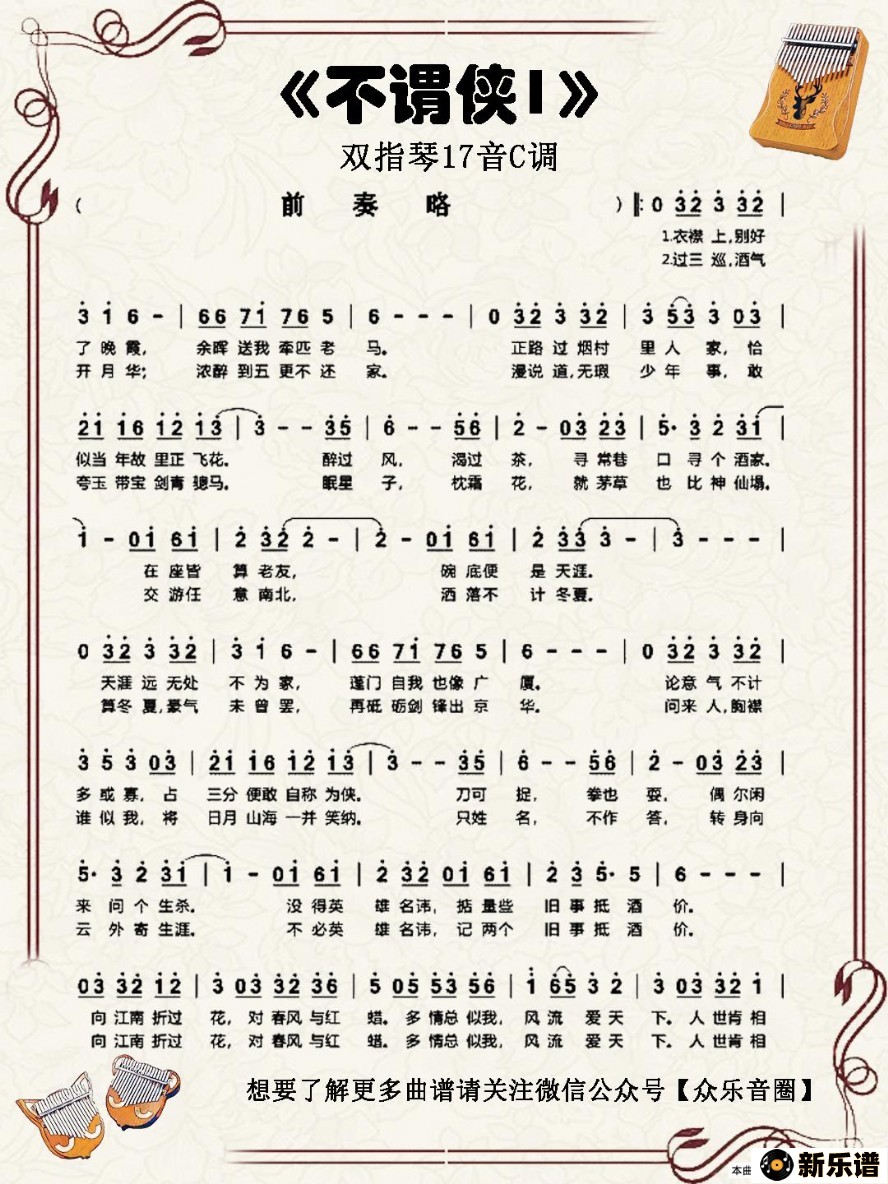 《不谓侠1》
双指琴17音C调
( 前 奏 略 ) ‖: 0 3̇2̇ 3̇ 3̇2̇ |
1.衣襟 上,别好
2.过三 巡,酒气
3̇ 1̇ 6 - | 66 71̇ 76 5 | 6 - - - | 0 3̇2̇ 3̇ 3̇2̇ | 3̇ 5̇3̇ 3̇ 03̇ |
了 晚 霞, 余晖 送我 牵匹 老 马。 正路 过 烟村 里 人 家, 恰
开 月 华; 浓醉 到五 更不 还 家。 漫说 道,无瑕 少 年 事, 敢
2̇1̇ 1̇6 1̇2̇ 1̇3̇ | 3̇ - - 3̇5̇ | 6̇ - - 5̇6̇ | 2̇ - 03̇ 2̇3̇ | 5̇· 3̇ 2̇ 3̇1̇ |
似当 年故 里正 飞花。 醉过 风, 渴过 茶, 寻 常巷 口 寻 个 酒家。
夸玉 带宝 剑青 骢马。 眠星 子, 枕霜 花, 就 茅草 也 比 神 仙塌。
1̇ - 01̇ 61̇ | 2̇ 3̇2̇ 2̇ - | 2̇ - 01̇ 61̇ | 2̇ 3̇3̇ 3̇ - | 3̇ - - - |
在 座皆 算 老友, 碗 底便 是 天涯。
交 游任 意 南北, 洒 落不 计 冬夏。
0 3̇2̇ 3̇ 3̇2̇ | 3̇ 1̇ 6 - | 66 71̇ 76 5 | 6 - - - | 0 3̇2̇ 3̇ 3̇2̇ |
天涯 远 无处 不 为 家, 蓬门 自我 也像 广 厦。 论意 气 不计
算冬 夏,豪气 未 曾 罢, 再砥 砺剑 锋出 京 华。 问来 人,胸襟
3̇ 5̇ 3̇ 03̇ | 2̇1̇ 1̇6 1̇2̇ 1̇3̇ | 3̇ - - 3̇5̇ | 6̇ - - 5̇6̇ | 2̇ - 03̇ 2̇3̇ |
多 或 寡, 占 三分 便敢 自称 为侠。 刀可 捉, 拳也 耍, 偶 尔闲
谁 似 我, 将 日月 山海 一并 笑纳。 只姓 名, 不作 答, 转 身向
5̇· 3̇ 2̇ 3̇1̇ | 1̇ - 01̇ 61̇ | 2̇ 3̇2̇ 01̇ 61̇ | 2̇ 3̇ 5̇· 5 | 6 - - - |
来 问 个 生杀。 没 得英 雄 名讳, 掂 量些 旧 事 抵 酒 价。
云 外 寄 生涯。 不 必英 雄 名讳, 记 两个 旧 事 抵 酒 价。
03̇ 3̇2̇ 1̇2̇ | 3̇ 03̇ 3̇2̇ 3̇6 | 5 05 53 56 | 1̇ 65 3 2 | 3 03 32 1 |
向 江南 折过 花, 对 春风 与红 蜡。 多 情总 似我, 风 流 爱 天 下。 人 世肯 相
向 江南 折过 花, 对 春风 与红 蜡。 多 情总 似我, 风 流 爱 天 下。 人 世肯 相
想要了解更多曲谱请关注微信公众号【众乐音圈】
本曲 新乐谱